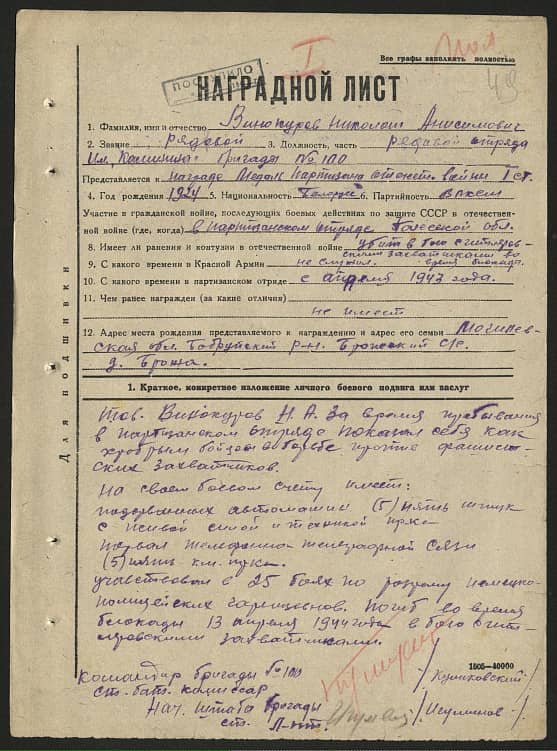 I
Все графы заполнять полностью
49
ПОСТУПИЛО
НАГРАДНОЙ ЛИСТ
1. Фамилия, имя и отчество Винокуров Николай Анисимович
2. Звание рядовой 3. Должность, часть рядовой отряда
Им. Калинина бригады № 100
Представляется к награде Медаль Партизана отечеств. войны I ст.
4. Год рождения 1924 5. Национальность Белорус 6. Партийность ВЛКСМ
Участие в гражданской войне, последующих боевых действиях по защите СССР в отечествен-
ной войне (где, когда) в партизанском отряде Полесской обл.
8. Имеет ли ранения и контузии в отечественной войне убит в бою с гитлеров-
скими захватчиками во
9. С какого времени в Красной Армии не служил. время блокады.
10. С какого времени в партизанском отряде с апреля 1943 года.
11. Чем ранее награжден (за какие отличия)
не имеет
12. Адрес места рождения представляемого к награждению и адрес его семьи Могилев-
ская обл. Бобруйский р-н. Брожский с/с
д. Брожа.
Для подшивки
1. Краткое, конкретное изложение личного боевого подвига или заслуг
Тов. Винокуров Н. А. За время пребывания
в партизанском отряде показал себя как
храбрым бойцом в борьбе против фашист-
ских захватчиков.
На своем боевом счету имеет:
подорванных автомашин (5) пять штук
с живой силой и техникой пр-ка
порвал телефонно-телеграфной связи
(5) пять км. пр-ка.
участвовал в 25 боях по разгрому немецко-
полицейских гарнизонов. Погиб во время
блокады 13 апреля 1944 года в бою с гит-
леровскими захватчиками.
1606—40000
Командир бригады № 100
ст. бат. комиссар
Нач. штаба бригады
ст. л-нт.